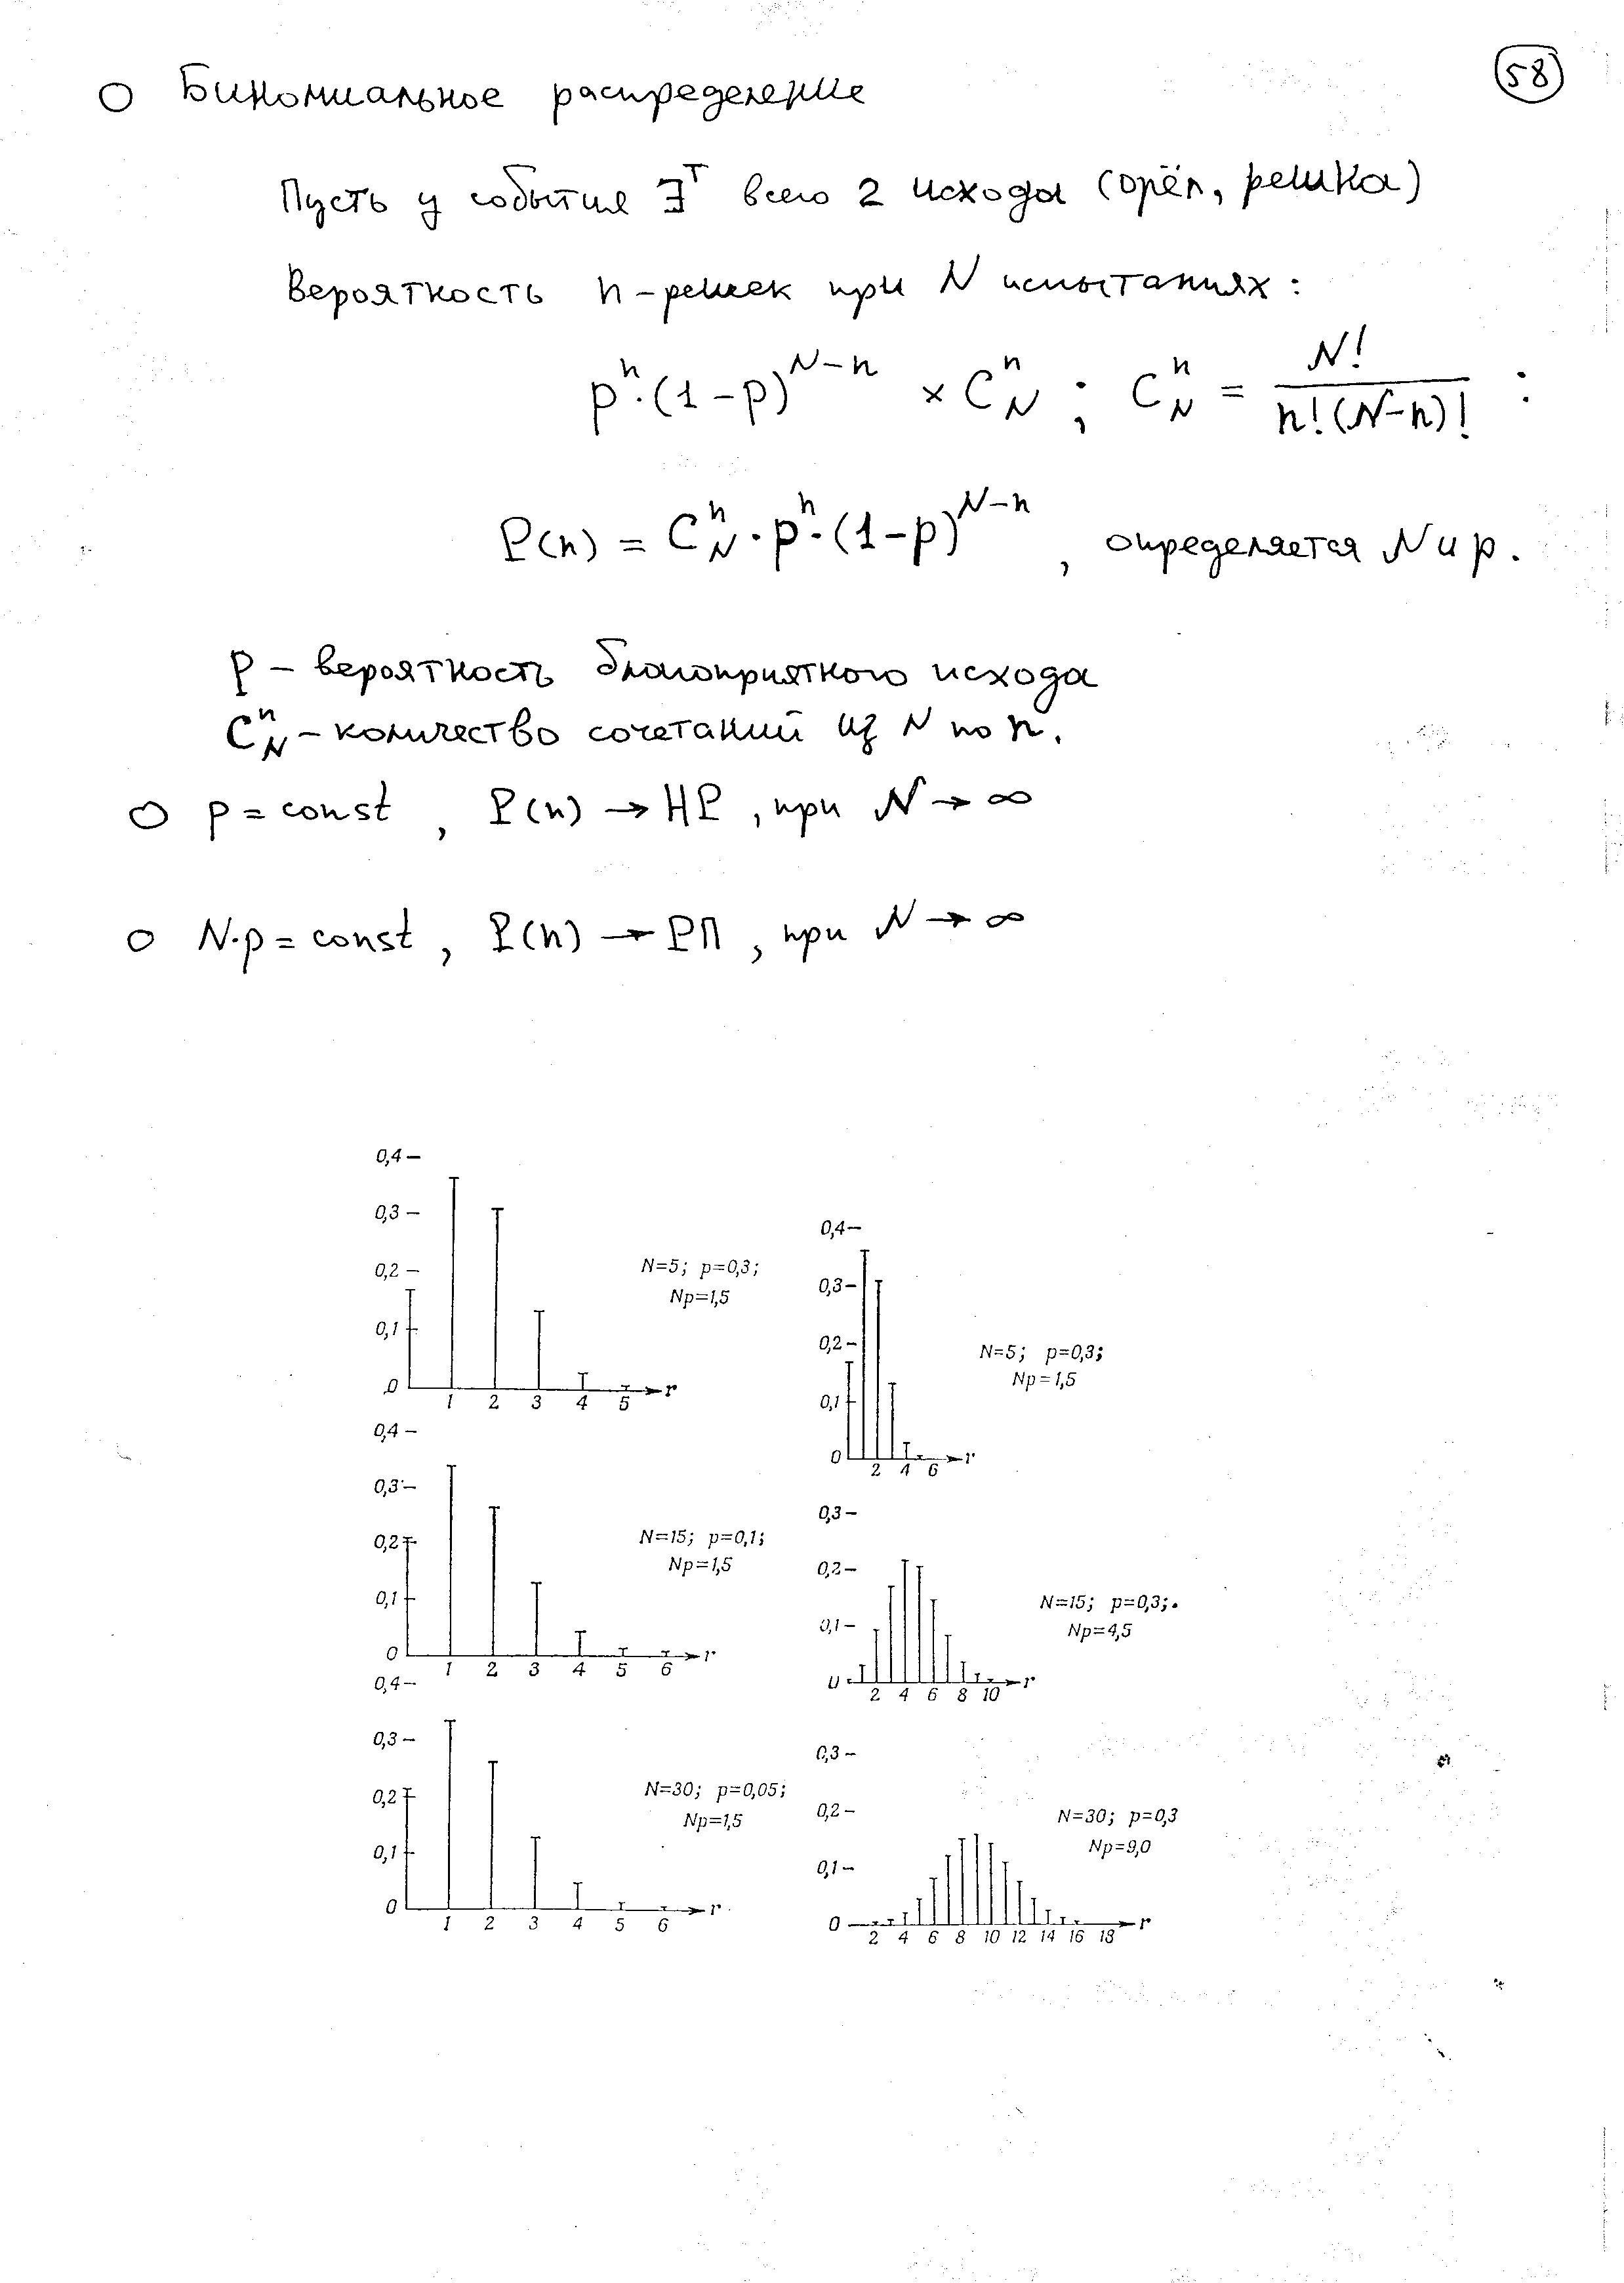 58
○ Биномиальное распределение
Пусть у события ∃ᵀ всего 2 исхода (орёл, решка)
Вероятность n-решек при N испытаниях:
pⁿ·(1-p)^(N-n) × C_N^n ; C_N^n = N! / n!(N-n)! :
P(n) = C_N^n · pⁿ·(1-p)^(N-n) , определяется N и p.
p – вероятность благоприятного исхода
C_N^n – количество сочетаний из N по n.
○ p = const , P(n) → НР , при N → ∞
○ N·p = const , P(n) → РП , при N → ∞
0,4
0,3
0,2
0,1
0
1 2 3 4 5 r
N=5; p=0,3;
Np=1,5
0,4
0,3
0,2
0,1
0
2 4 6 r
N=5; p=0,3;
Np=1,5
0,4
0,3
0,2
0,1
0
1 2 3 4 5 6 r
N=15; p=0,1;
Np=1,5
0,3
0,2
0,1
0
2 4 6 8 10 r
N=15; p=0,3;
Np=4,5
0,4
0,3
0,2
0,1
0
1 2 3 4 5 6 r
N=30; p=0,05;
Np=1,5
0,3
0,2
0,1
0
2 4 6 8 10 12 14 16 18 r
N=30; p=0,3
Np=9,0